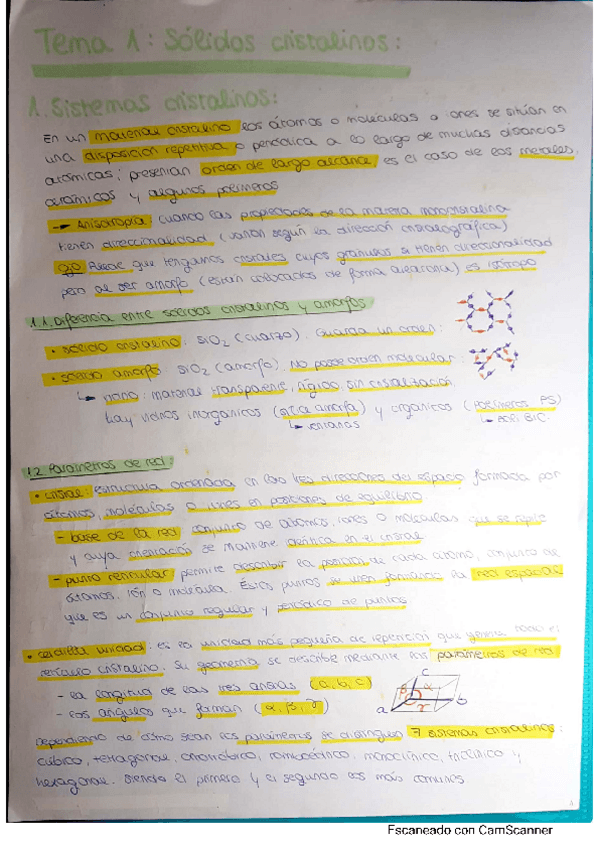 Tema 1: Sólidos cristalinos:
1. Sistemas cristalinos:
En un material cristalino los átomos o moléculas o iones se sitúan en
una disposición repetitiva o periódica a lo largo de muchas distancias
atómicas; presentan orden de largo alcance, es el caso de los metales,
cerámicos y algunos polímeros
→ Anisotropía: cuando las propiedades de la materia monocristalina
tienen direccionalidad (varían según la dirección cristalográfica)
que tengamos cristales cuyos gránulos si tienen direccionalidad
pero al ser amorfo (están colocados de forma aleatoria) es isótropo
1.1. Diferencia entre sólidos cristalinos y amorfos
• sólido cristalino: SiO2 (cuarzo). Guarda un orden:
• sólido amorfo: SiO2 (amorfo). No posee orden molecular
↳ vidrio: material transparente, rígido, sin cristalización.
Hay vidrios inorgánicos (sílice amorfa) y orgánicos (Polímeros: PS)
↳ ventanas ↳ BOLI BIC.
1.2 Parámetros de red:
• cristal: estructura ordenada en las tres direcciones del espacio formada por
átomos, moléculas o iones en posiciones de equilibrio
- base de la red: conjunto de átomos, iones o moléculas que se repite
y cuya orientación se mantiene idéntica en el cristal
- punto reticular: permite describir la posición de cada átomo, conjunto de
átomos, ión o molécula. Estos puntos se unen formando la red espacial
que es un conjunto regular y periódico de puntos
• celdilla unidad: es la unidad más pequeña de repetición que genera todo el
retículo cristalino. Su geometría se describe mediante los parámetros de red
- la longitud de las tres aristas (a, b, c)
- los ángulos que forman (α, β, γ)
c
β α
a γ b
Dependiendo de cómo sean los parámetros se distinguen 7 sistemas cristalinos:
cúbico, tetragonal, ortorrómbico, romboédrico, monoclínico, triclínico y
hexagonal. Siendo el primero y el segundo los más comunes
Escaneado con CamScanner